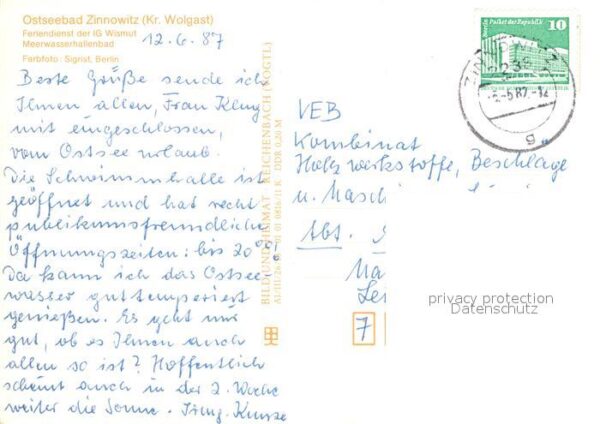 Ostseebad Zinnowitz (Kr. Wolgast)
Feriendienst der IG Wismut
Meerwasserhallenbad
Farbfoto: Sigrist, Berlin
12.6.87
Beste Grüße sende ich
Ihnen allen, Frau Klug
mit eingeschlossen,
vom Ostseeurlaub.
Die Schwimmhalle ist
geöffnet und hat recht
publikumsfreundliche
Öffnungszeiten: bis 20⁰⁰.
Da kann ich das Ostsee-
wasser guttemperiert
genießen. Es geht mir
gut, ob es Ihnen auch
allen so ist? Hoffentlich
scheint auch in der 2. Woche
weiter die Sonne. Kunze
BILD UND HEIMAT REICHENBACH (VOGTL)
DDR 0,20 M
Berlin Palast der Republik
10
DDR
ZINNOWITZ
2238
g
VEB
Kombinat
Holzwerkstoffe, Beschläge
u. Masch
Abt.
7
privacy protection
Datenschutz